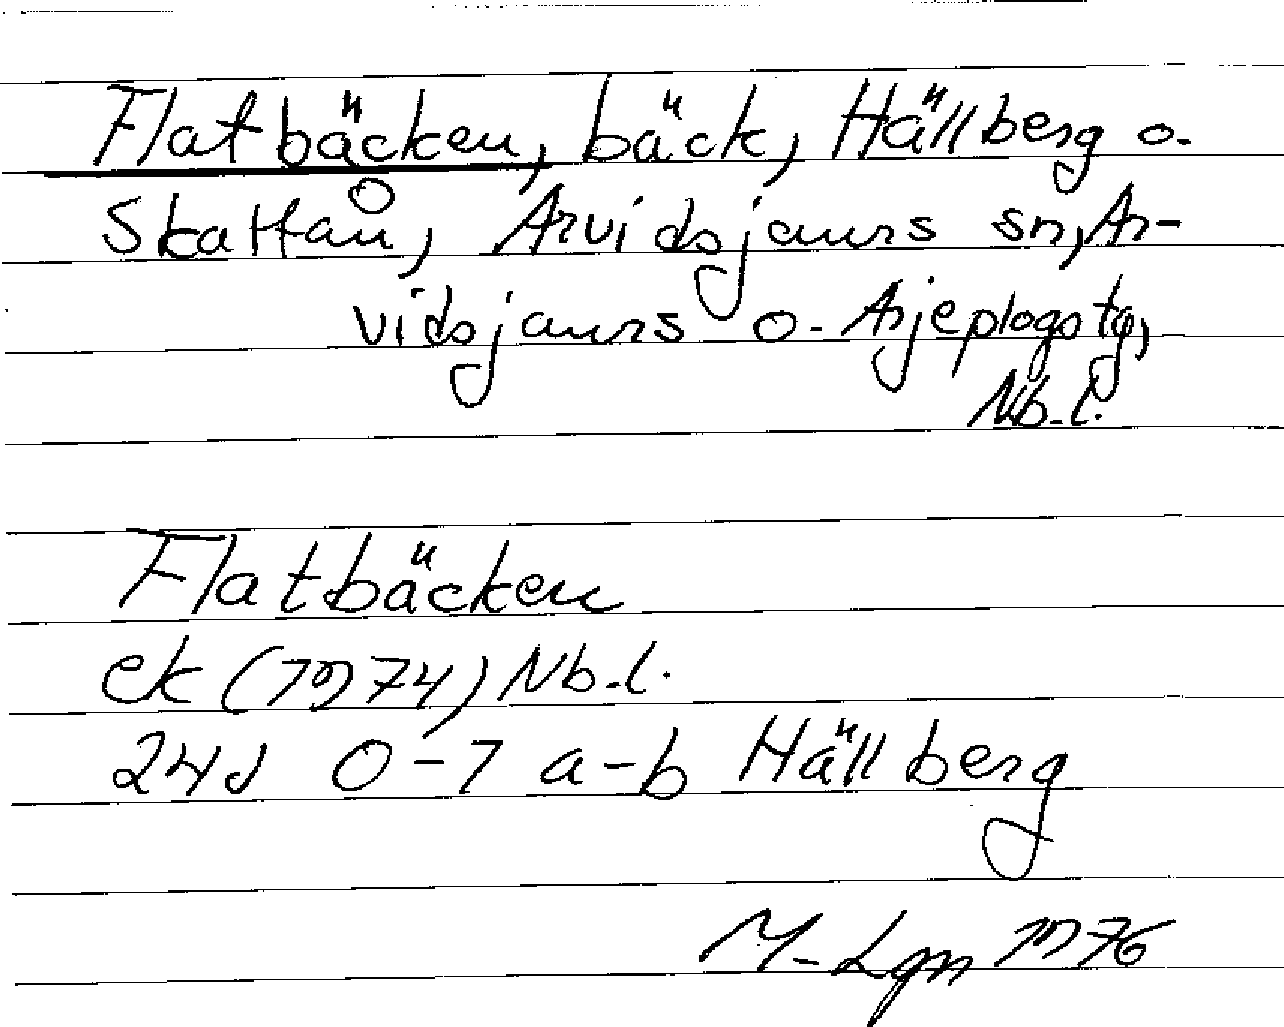 Flatbäcken, bäck, Hällberg o.
Skattån, Arvidsjaurs sn, Ar-
vidsjaurs o. Arjeplogs tg,
Nb. l.
Flatbäcken
ek (1974) Nb. l.
24J 0-1 a-b Hällberg
M-Lgn 1976